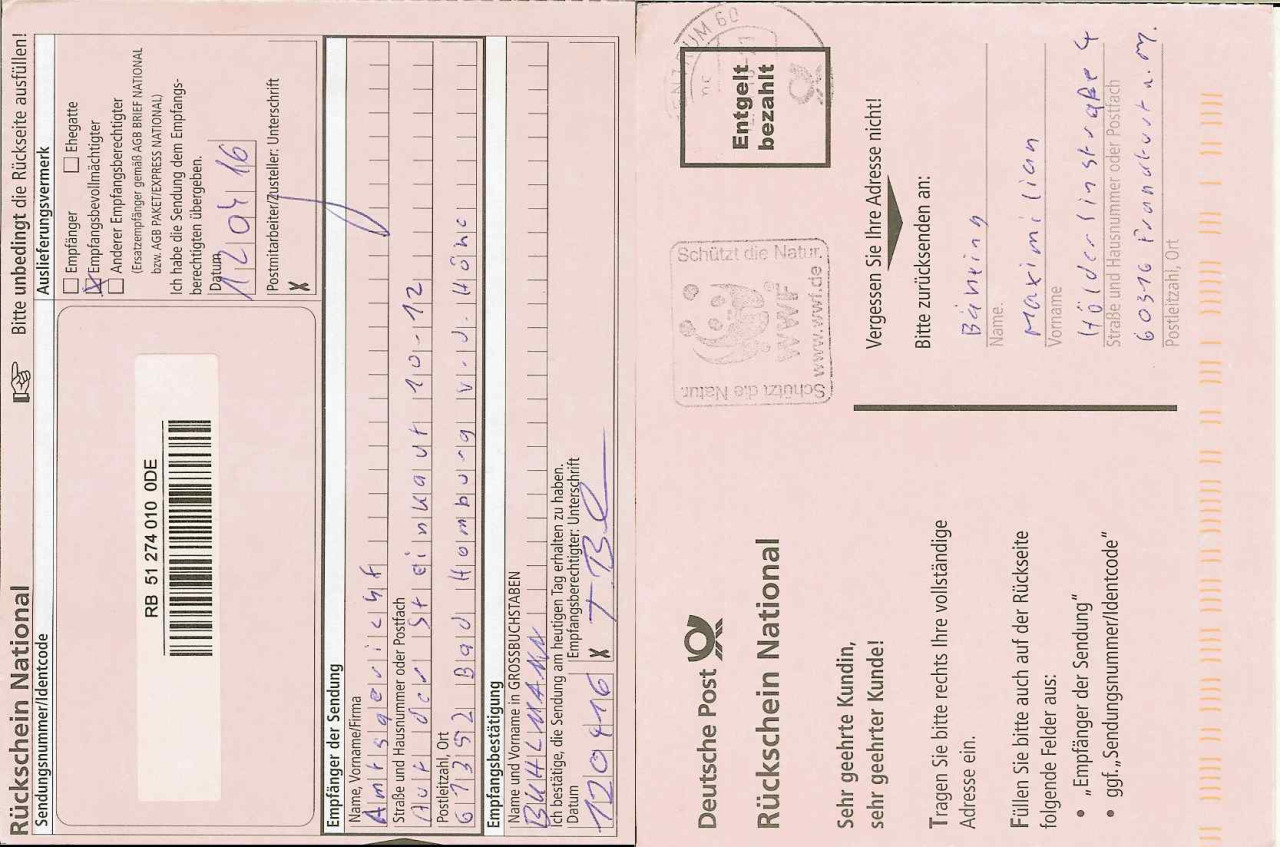 Rückschein National
☞ Bitte unbedingt die Rückseite ausfüllen!
Sendungsnummer/Identcode
RB 51 274 010 0DE
Auslieferungsvermerk
Empfänger Ehegatte
Empfangsbevollmächtigter
Anderer Empfangsberechtigter
(Ersatzempfänger gemäß AGB BRIEF NATIONAL
bzw. AGB PAKET/EXPRESS NATIONAL)
Ich habe die Sendung dem Empfangs-
berechtigten übergeben.
Datum
12 04 16
Postmitarbeiter/Zusteller: Unterschrift
X
Empfänger der Sendung
Name, Vorname/Firma
Amtsgericht
Straße und Hausnummer oder Postfach
Auf der Steinkaut 10-12
Postleitzahl, Ort
61352 Bad Homburg v.d. Höhe
Empfangsbestätigung
Name und Vorname in GROSSBUCHSTABEN
BUHLMANN
Ich bestätige, die Sendung am heutigen Tag erhalten zu haben.
Datum Empfangsberechtigter: Unterschrift
120416 X
Deutsche Post
Rückschein National
Sehr geehrte Kundin,
sehr geehrter Kunde!
Tragen Sie bitte rechts Ihre vollständige
Adresse ein.
Füllen Sie bitte auch auf der Rückseite
folgende Felder aus:
• „Empfänger der Sendung"
• ggf. „Sendungsnummer/Identcode"
Entgelt
bezahlt
ZENTRUM 60
Schützt die Natur.
WWF
www.wwf.de
Schützt die Natur.
Vergessen Sie Ihre Adresse nicht!
Bitte zurücksenden an:
Name
Maximilian
Vorname
Hölderlinstraße 4
Straße und Hausnummer oder Postfach
60316 Frankfurt a.M.
Postleitzahl, Ort